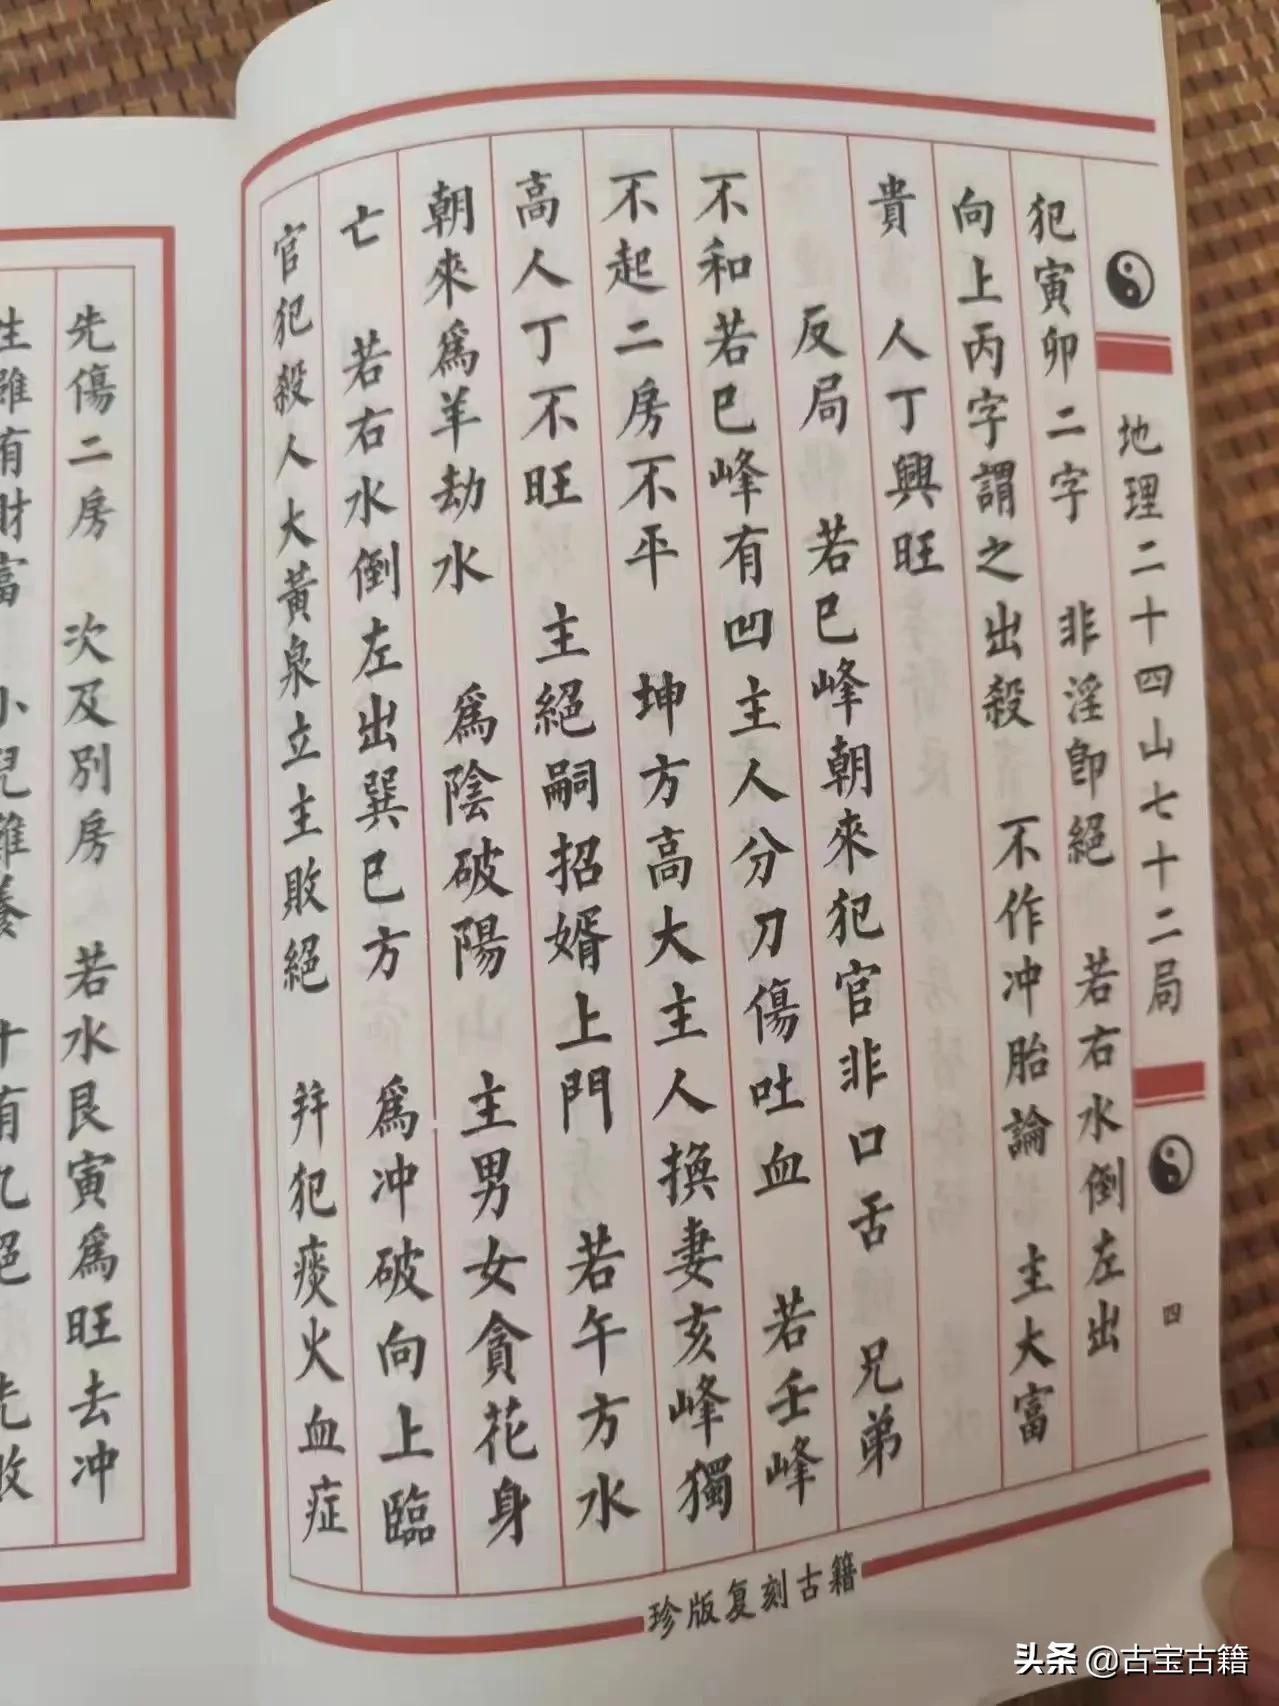 地理二十四山七十二局
四
犯寅卯二字 非淫卽絕 若右水倒左出
向上丙字謂之出殺 不作冲胎論 主大富
貴 人丁興旺
反局 若巳峰朝來犯官非口舌 兄弟
不和若巳峰有凹主人分刀傷吐血 若壬峰
不起二房不平 坤方高大主人換妻亥峰獨
高人丁不旺 主絕嗣招婿上門 若午方水
朝來爲羊劫水 爲陰破陽 主男女貪花身
亡 若右水倒左出巽巳方 爲冲破向上臨
官犯殺人大黃泉立主敗絕 幷犯痰火血症
珍版复刻古籍
先傷二房 次及別房 若水艮寅爲旺去冲
性雖有財富 小兒難養 十有九絕 先敗
头条 @古宝古籍